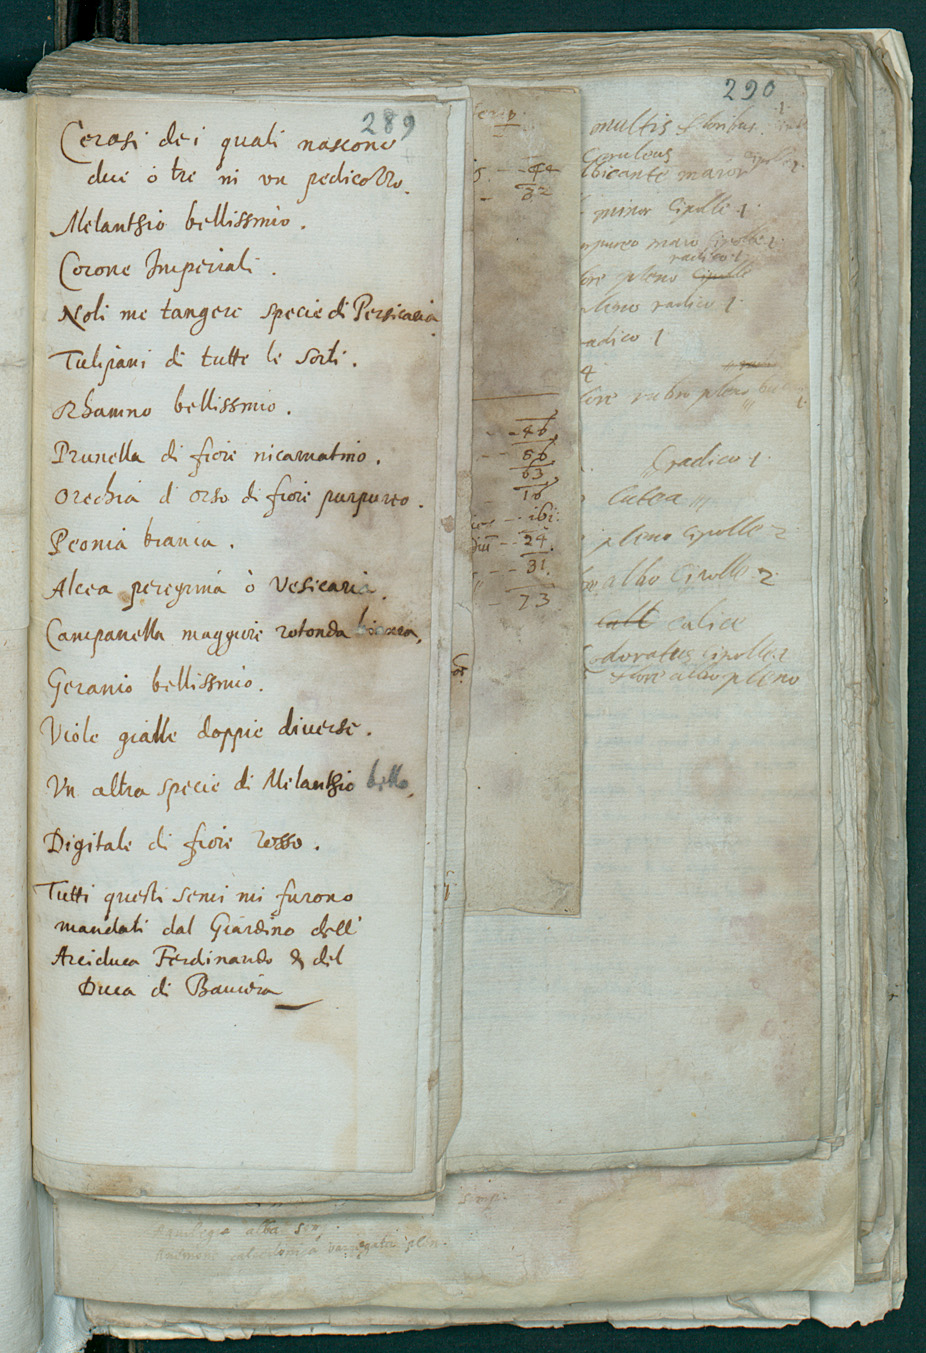 289
Cerasi dei quali nascono
due ò tre in un pedicozzo.
Melanthio bellissimo.
Corone Imperiali.
Noli me tangere specie di Persicaria.
Tulipani di tutte le sorti.
Rhamno bellissimo.
Prunella di fiore incarnatino.
Orechia d orso di fiore purpureo.
Peonia bianca.
Alcea peregrina ò Vesicaria.
Campanella maggiore rotonda bianca.
Geranio bellissimo.
Viole gialle doppie diverse.
Un altra specie di Melanthio bello.
Digitale di fiore rosso.
Tutti questi semi mi furono
mandati dal Giardino dell'
Arciduca Ferdinando & del
Duca di Baviera
46
56
63
16
ibi.
24.
31.
73
290
multis floribus
ceruleus
bicante maior
minor Cipolle 1.
maro Cipolle 1.
radice 1.
pleno
pleno radice 1
radice 1
4
rubro pleno
radice 1.
lutea
pleno Cipolle 2
albo Cipolle 2
calice
odoratus Cipolle 1
flore albo pleno
Aquilegia alba
Anemone variegata plen.